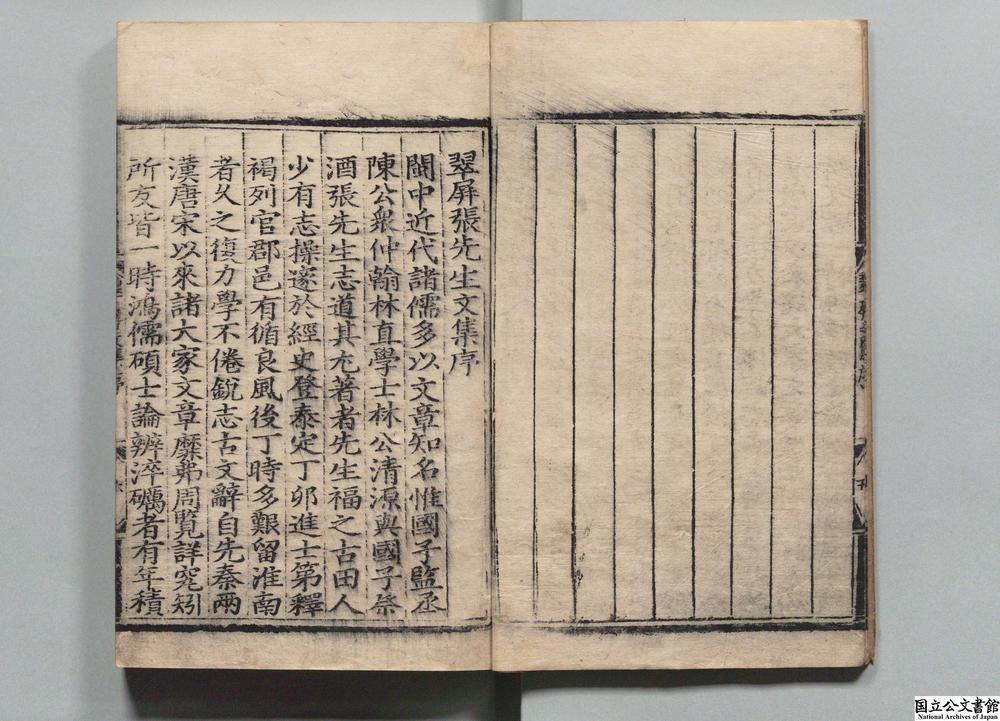 翠屏張先生文集序
閩中近代諸儒多以文章知名惟國子監丞
陳公衆仲翰林直學士林公清源與國子祭
酒張先生志道其尤著者先生福之古田人
少有志操邃於經史登泰定丁卯進士第釋
褐列官郡邑有循良風後丁時多艱留淮南
者久之復力學不倦銳志古文辭自先秦兩
漢唐宋以來諸大家文章靡弗周覧詳究矧
所友皆一時鴻儒碩士論辨淬礪者有年積
国立公文書館
National Archives of Japan